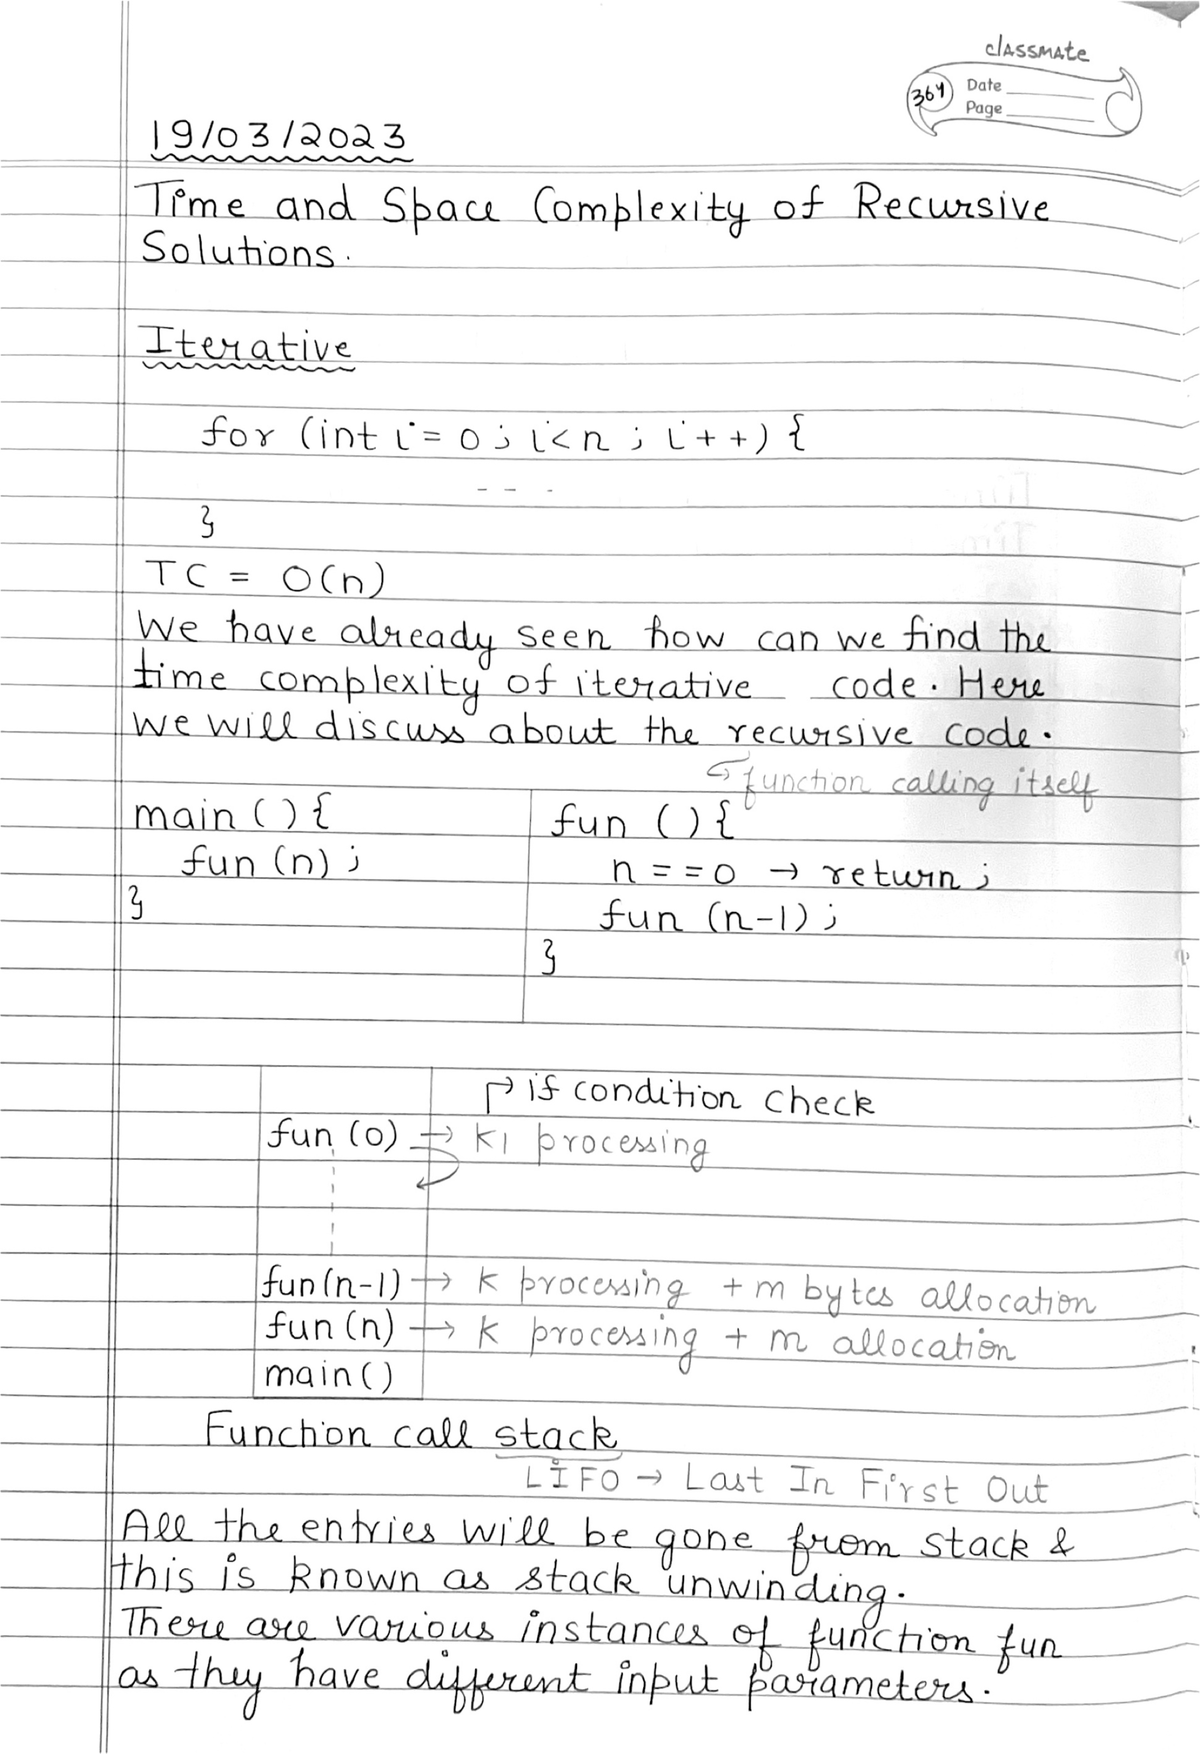 classmate
Date
364
Page
19/03/2023
Time and Space Complexity of Recursive
Solutions.
Iterative
for (int i = 0 ; i<n ; i++) {
- - -
}
TC = O(n)
We have already seen how can we find the
time complexity of iterative code. Here
we will discuss about the recursive code.
↳ function calling itself
main () {
fun (n) ;
}
fun () {
n == 0 → return ;
fun (n-1) ;
}
↱ if condition check
fun (0) → k1 processing
fun (n-1) → k processing + m bytes allocation
fun (n) → k processing + m allocation
main ()
Function call stack
LIFO → Last In First Out
All the entries will be gone from stack &
this is known as stack unwinding.
There are various instances of function fun
as they have different input parameters.